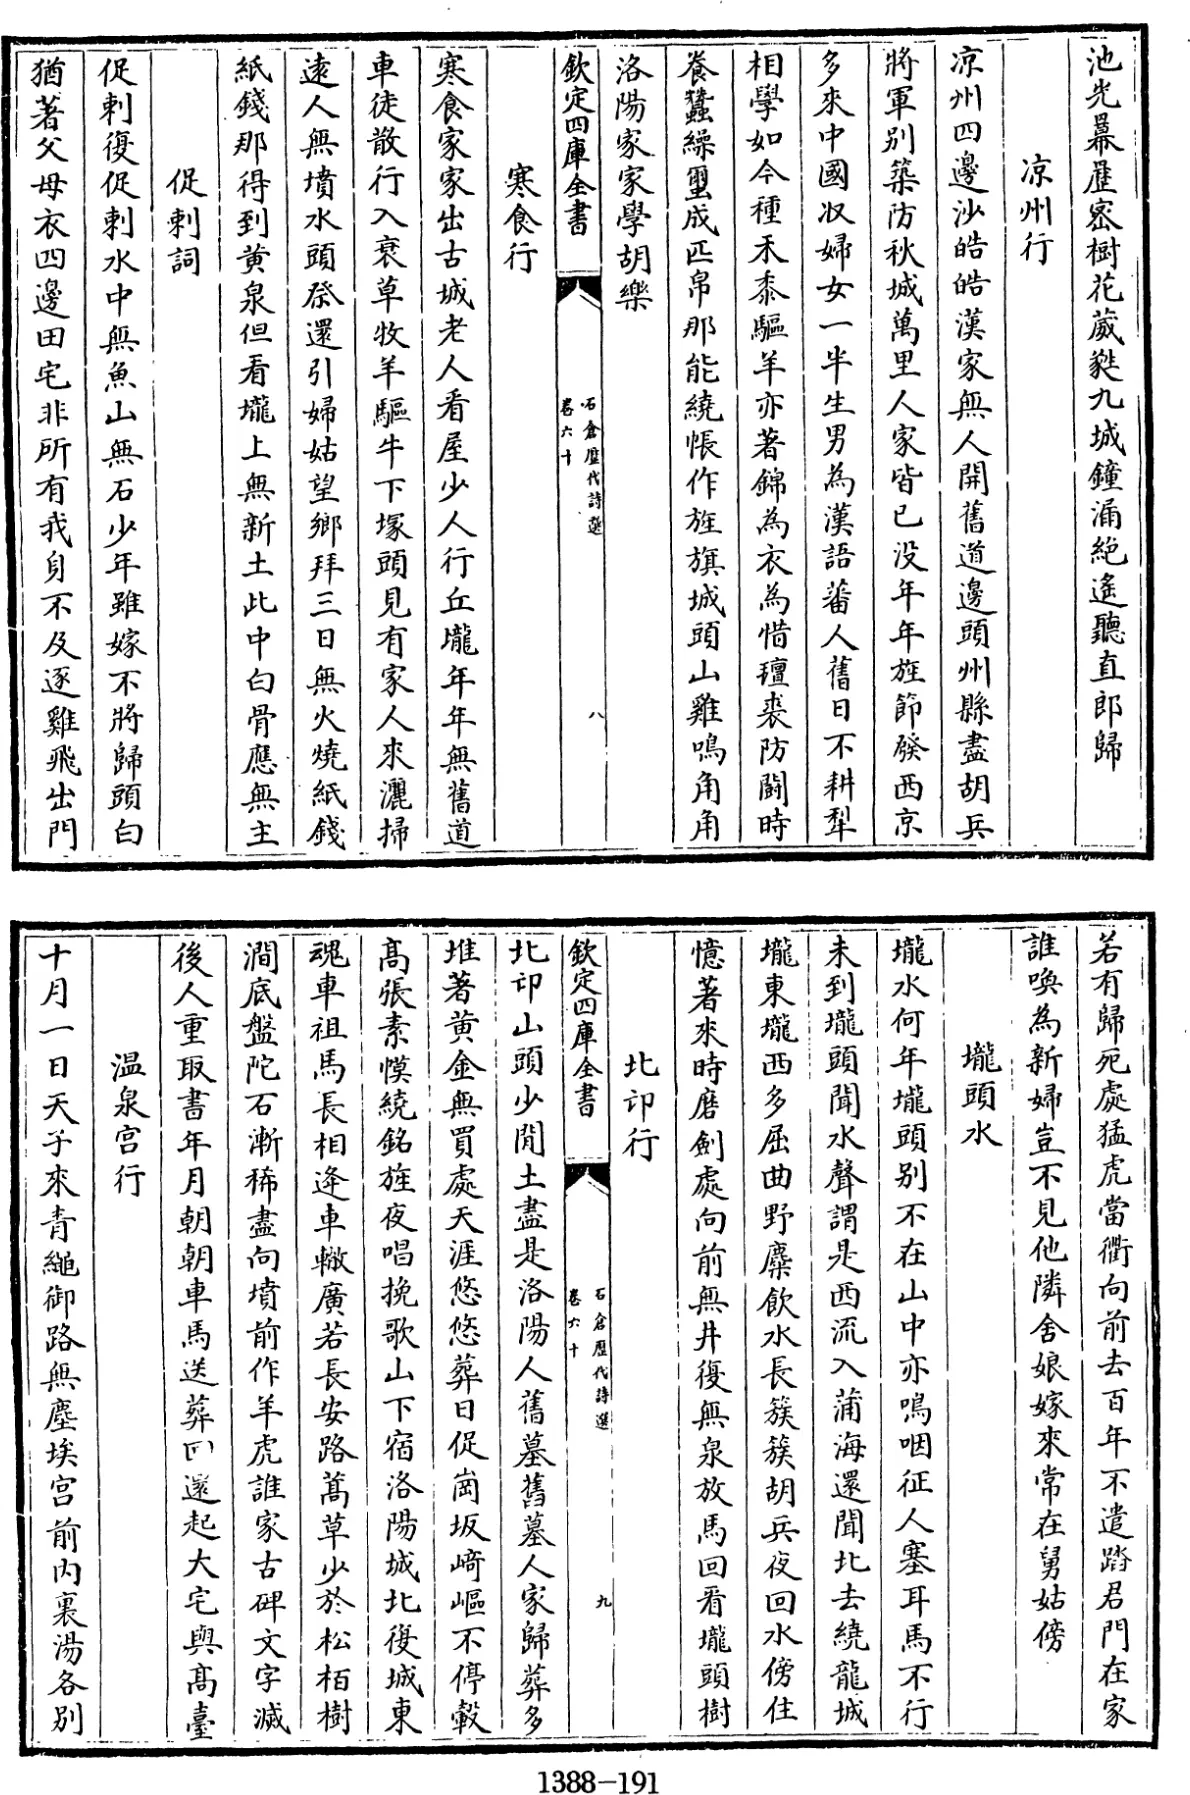 池光幕歴密樹花葳蕤九城鐘漏絶遙聽直郎歸
凉州行
凉州四邊沙皓皓漢家無人開舊道邊頭州縣盡胡兵
將軍别築防秋城萬里人家皆已没年年旌節發西京
多來中國収婦女一半生男為漢語蕃人舊日不耕犁
相學如今種禾黍驅羊亦著錦為衣為惜氊裘防鬬時
養蠶繰蠒成匹帛那能繞帳作旌旗城頭山雞鳴角角
洛陽家家學胡樂
欽定四庫全書
石倉歴代詩選
卷六十
八
寒食行
寒食家家出古城老人看屋少人行丘壠年年無舊道
車徒散行入衰草牧羊驅牛下塚頭見有家人來灑掃
逺人無墳水頭祭還引婦姑望鄉拜三日無火燒紙錢
紙錢那得到黄泉但看壠上無新土此中白骨應無主
促刺詞
促刺復促刺水中無魚山無石少年雖嫁不將歸頭白
猶著父母衣四邊田宅非所有我身不及逐雞飛出門
若有歸死處猛虎當衢向前去百年不遣踏君門在家
誰喚為新婦豈不見他隣舍娘嫁來常在舅姑傍
壠頭水
壠水何年壠頭别不在山中亦鳴咽征人塞耳馬不行
未到壠頭聞水聲謂是西流入蒲海還聞北去繞龍城
壠東壠西多屈曲野麋飲水長簇簇胡兵夜回水傍住
憶著來時磨劍處向前無井復無泉放馬回看壠頭樹
北邙行
欽定四庫全書
石倉歴代詩選
卷六十
九
北邙山頭少閒土盡是洛陽人舊墓舊墓人家歸葬多
堆著黄金無買處天涯悠悠葬日促岡坂﨑嶇不停轂
髙張素幙繞銘旌夜唱挽歌山下宿洛陽城北復城東
魂車祖馬長相逢車轍廣若長安路蒿草少於松柏樹
澗底盤陀石漸稀盡向墳前作羊虎誰家古碑文字滅
後人重取書年月朝朝車馬送葬回還起大宅與髙臺
温泉宫行
十月一日天子來青繩御路無塵埃宫前内裏湯各别
1388-191